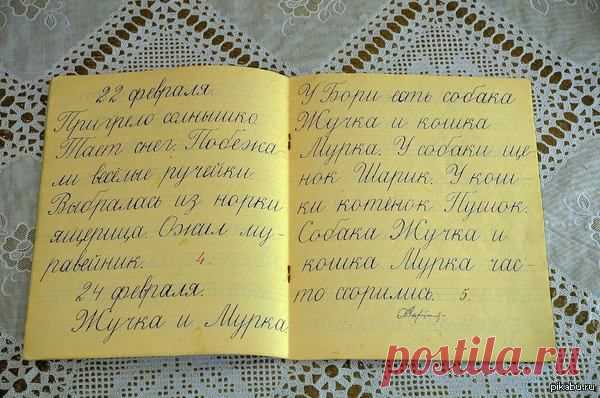 22 февраля.
Пригрело солнышко.
Тает снег. Побежа-
ли весёлые ручейки.
Выбралась из норки
ящерица. Ожил му-
равейник. 4.
24 февраля.
Жучка и Мурка.
У Бори есть собака
Жучка и кошка
Мурка. У собаки ще-
нок Шарик. У кош-
ки котёнок Пушок.
Собака Жучка и
кошка Мурка час-
то ссорились. 5.
postila.ru
pikabu.ru